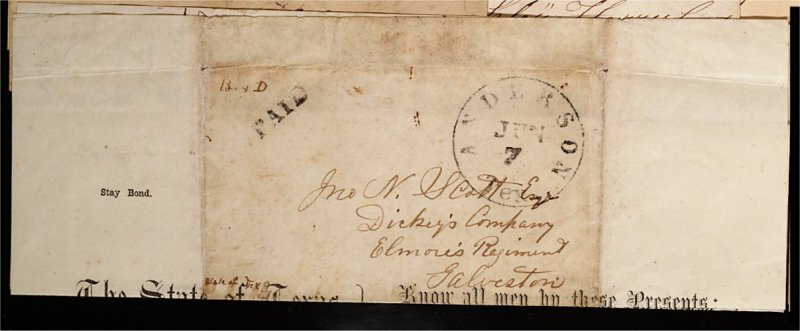 B & D
PAID
ANDERSON
JAN
7
Tex
Stay Bond.
Jno N. Scott Esqr
Dickey's Company
Elmore's Regiment
Galveston
State of Tex
The State of Texas } Know all men by these Presents: